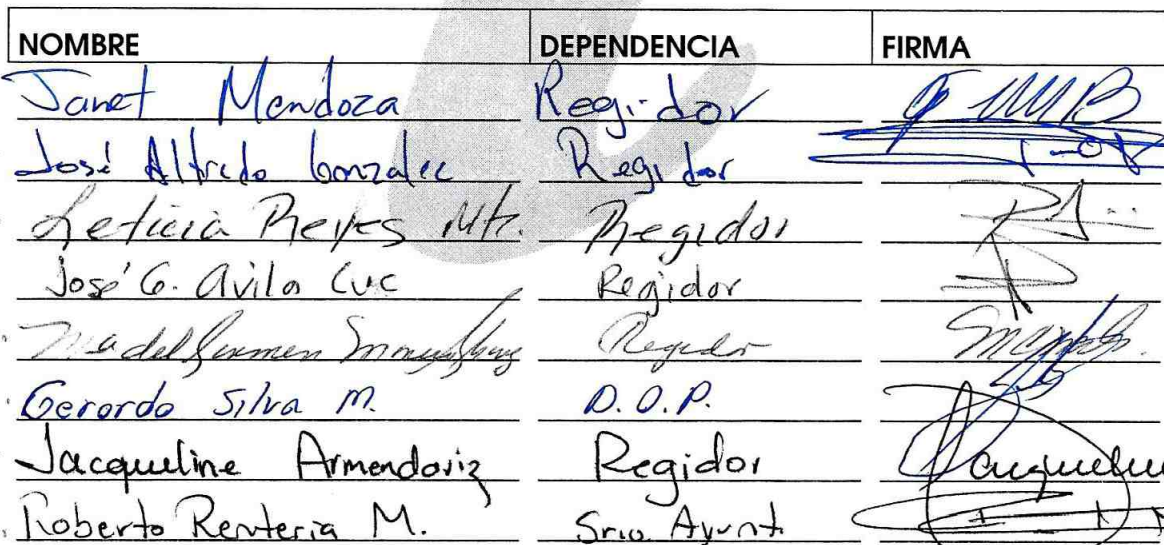 NOMBRE DEPENDENCIA FIRMA
Janet Mendoza Regidor
José Alfredo Gonzalez Regidor
Leticia Reyes Mtz. Regidor
José G. Avila Cuc Regidor
Ma del Carmen Regidor
Gerardo Silva M. D.O.P.
Jacqueline Armendariz Regidor Jacqueline
Roberto Renteria M. Srio. Ayunt.